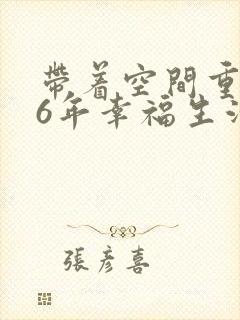 帶着空間重
6年幸福生活
張彥喜